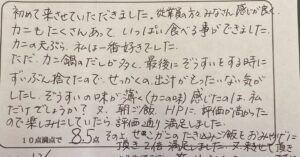 初めて来させていただきました。従業員の方々みなさん感じが良く、
カニもたくさんあって、いっぱい食べる事ができました。
カニの天ぷら、私は一番好きでした。
ただ、カニ鍋のだしが多く、最後にぞうすいをする時に
ずいぶん捨てたので、せっかくの出汁がもったいない気が
したし、ぞうすいの味が薄く(カニの味)感じたのは、私
だけでしょうか? 又、朝ご飯、HPに、評価が高かった
ので楽しみにしていたら評価通り満足しました。
10点満点で 8.5点 その上、せこガニのたき込みご飯をおみやげに
頂き2倍満足しました。又、来させて頂き